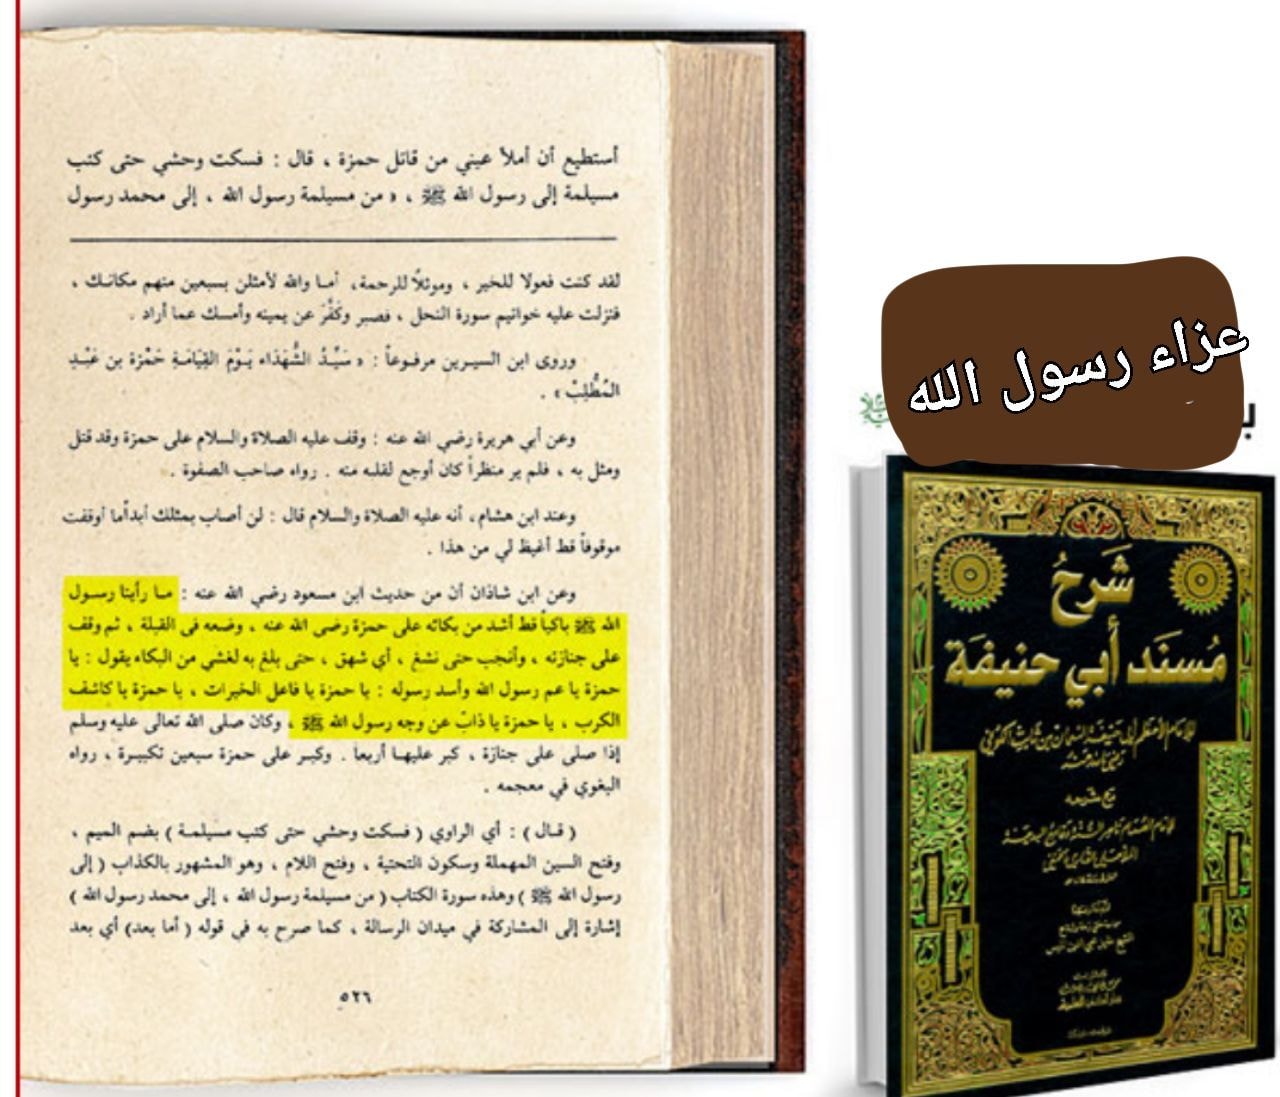 أستطيع أن أملأ عيني من قاتل حمزة ، قال : فسكت وحشي حتى كتب
مسيلمة إلى رسول الله ﷺ ، « من مسيلمة رسول الله ، إلى محمد رسول
لقد كنت فعولا للخير ، وموئلاً للرحمة، أما والله لأمثلن بسبعين منهم مكانك ،
فنزلت عليه خواتيم سورة النحل ، فصبر وكَفَّرَ عن يمينه وأمسك عما أراد .
وروى ابن السيرين مرفوعاً : « سَيِّدُ الشُّهَدَاء يَوْمَ القِيَامَةِ حَمْزة بن عَبْدِ
المُطَّلِبْ » .
وعن أبي هريرة رضي الله عنه : وقف عليه الصلاة والسلام على حمزة وقد قتل
ومثل به ، فلم ير منظراً كان أوجع لقلبه منه . رواه صاحب الصفوة .
وعند ابن هشام، أنه عليه الصلاة والسلام قال : لن أصاب بمثلك أبداًما أوقفت
موقوفاً قط أغيظ لي من هذا .
وعن ابن شاذان أن من حديث ابن مسعود رضي الله عنه : ما رأيتا رسول
الله ﷺ باكياً قط أشد من بكائه على حمزة رضى الله عنه ، وضعه فى القبلة ، ثم وقف
على جنازته ، وأنحب حتى نشغ ، أي شهق ، حتى بلغ به لغشي من البكاء يقول : يا
حمزة يا عم رسول الله وأسد رسوله : يا حمزة يا فاعل الخيرات ، يا حمزة يا كاشف
الكرب ، يا حمزة يا ذابّ عن وجه رسول الله ﷺ ، وكان صلى الله تعالى عليه وسلم
إذا صلى على جنازة ، كبر عليها أربعاً . وكبر على حمزة سبعين تكبيرة ، رواه
البغوي في معجمه .
( قال ) : أي الراوي ( فسكت وحشي حتى كتب مسيلمة ) بضم الميم ،
وفتح السين المهملة وسكون التحتية ، وفتح اللام ، وهو المشهور بالكذاب ( إلى
رسول الله ﷺ ) وهذه سورة الكتاب ( من مسيلمة رسول الله ، إلى محمد رسول الله )
إشارة إلى المشاركة في ميدان الرسالة ، كما صرح به في قوله ( أما بعد) أي بعد
٥٢٦
عزاء رسول الله
شَرحُ
مُسنَد أبي حنيفَة
للإمام الأعظم أبي حنيفة النعمان بن ثابت الكوفي
رضي الله عنه
مع شرحه